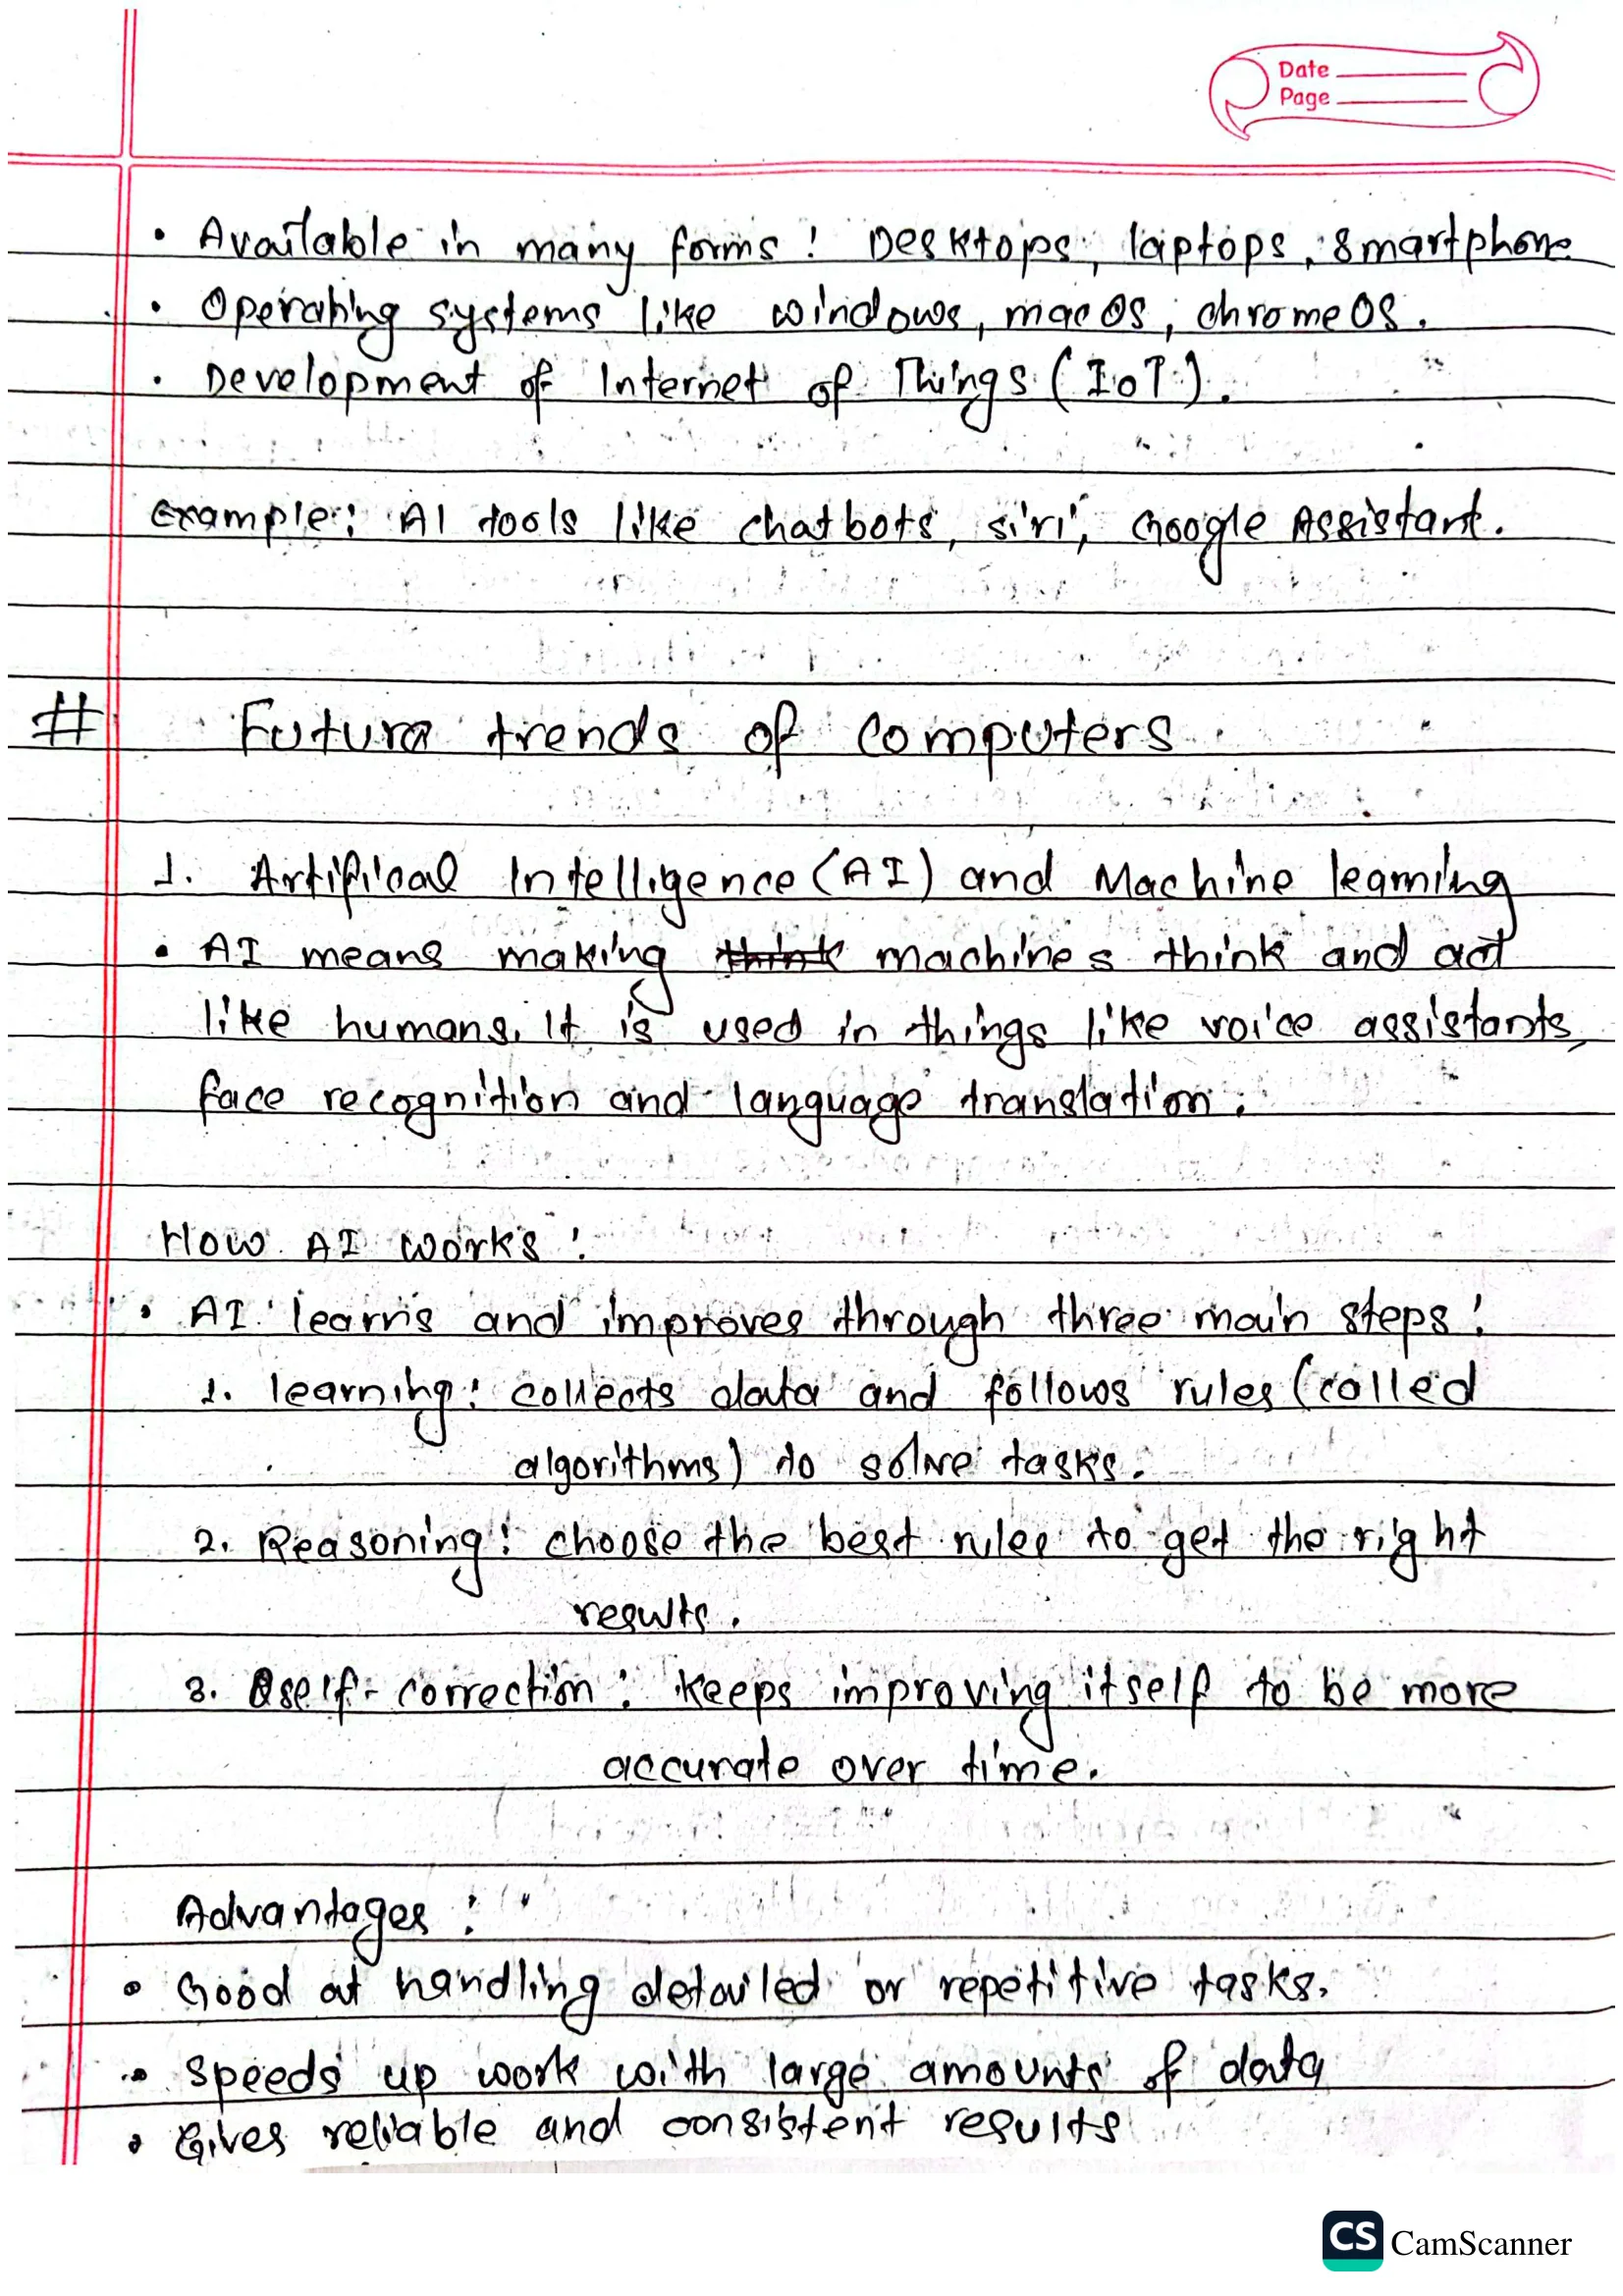 Date
Page
• Available in many forms : Desktops, laptops, smartphone
• Operating systems like windows, macOS, chromeOS.
• Development of Internet of Things (IoT).
Example: AI tools like chatbots, siri, Google Assistant.
# Future trends of computers
1. Artifical Intelligence (AI) and Machine learning
• AI means making think machines think and act
like humans. It is used in things like voice assistants,
face recognition and language translation.
How AI works :
• AI learns and improves through three main steps :
1. learning : collects data and follows rules (called
algorithms) to solve tasks.
2. Reasoning : choose the best rules to get the right
results.
3. self-correction : keeps improving itself to be more
accurate over time.
Advantages :
• Good at handling detailed or repetitive tasks.
• speeds up work with large amounts of data
• Gives reliable and consistent results
CS CamScanner